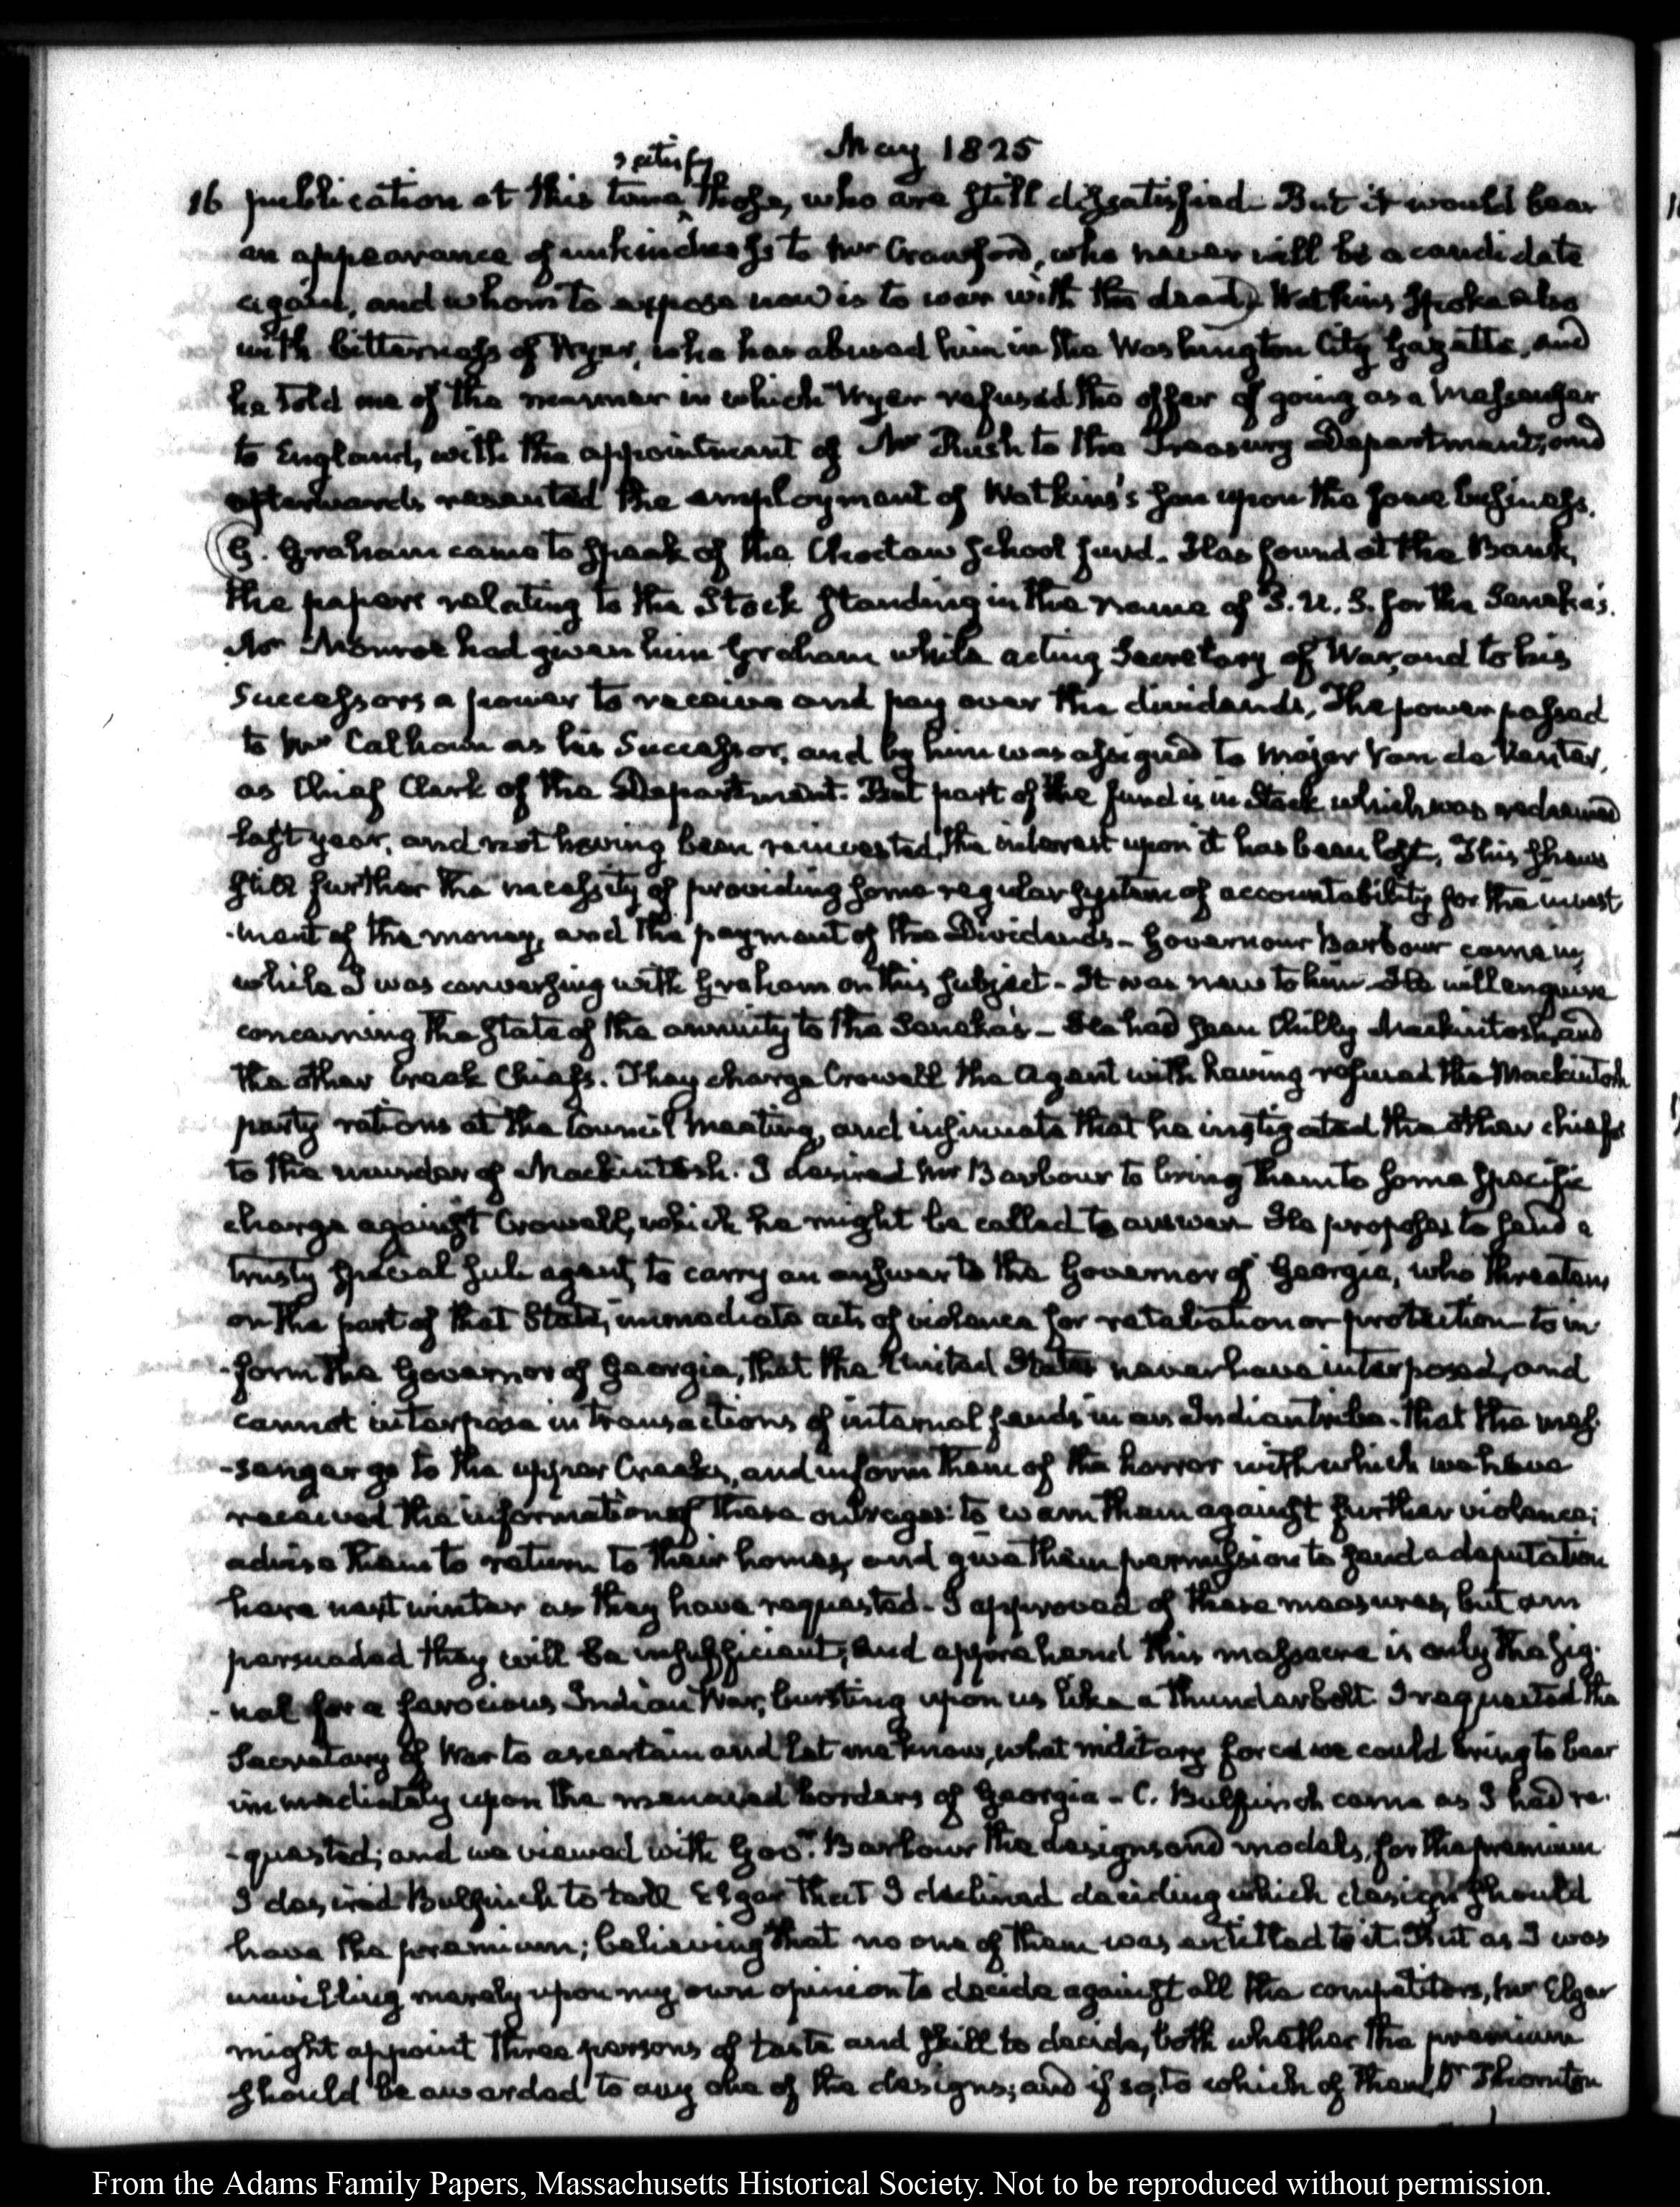 May 1825
satisfy
16 publication at this time, those, who are still dissatisfied. But it would bear
an appearance of unkindness to Mr Crawford, who never will be a candidate
again, and whom to expose now is to war with the dead) Watkins spoke also
with bitterness of Wyer, who has abused him in the Washington City Gazette, and
he told me of the manner in which Wyer refused the offer of going as a Messenger
to England, with the appointment of Mr Rush to the Treasury Department, and
afterwards resented the employment of Watkins's son upon the same business.
(G. Graham came to speak of the Choctaw School fund. Has found at the Bank,
the papers relating to the Stock standing in the name of P. U. S. for the Seneka's.
Mr Monroe had given him Graham while acting Secretary of War, and to his
Successors a power to receive and pay over the dividends, The power passed
to Mr Calhoun as his Successor, and by him was assigned to Major Van de Venter,
as Chief Clerk of the Department. But part of the fund is in Stock which was redeemed
last year, and not having been reinvested, the interest upon it has been lost, This shews
still further the necessity of providing some regular system of accountability for the invest
-ment of the money, and the payment of the Dividends - Governour Barbour came in,
while I was conversing with Graham on this subject - It was new to him - He will enquire
concerning the state of the annuity to the Seneka's - He had seen Chilly Mackintosh, and
the other Creek Chiefs. They charge Crowell the Agent with having refused the Mackintosh
party rations at the Council Meeting, and insinuate that he instigated the other chiefs
to the murder of Mackintosh. I desired Mr Barbour to bring them to some specific
charge against Crowell, which he might be called to answer He proposes to send a
trusty special sub agent, to carry an answer to the Governor of Georgia, who threatens
on the part of that State, immediate acts of violence for retaliation or protection - to in
-form the Governor of Georgia, that the United States never have interposed, and
cannot interpose in transactions of internal feuds in an Indian tribe - that the mes
-senger go to the upper Creeks, and inform them of the horror with which we have
received the information of these outrages: to warn them against further violence;
advise them to return to their homes, and give them permission to send a deputation
here next winter as they have requested - I approved of these measures, but am
persuaded they will be insufficient; and apprehend this massacre is only the sig-
-nal for a ferocious Indian War, bursting upon us like a thunderbolt I requested the
Secretary of War to ascertain and let me know, what military force we could bring to bear
immediately upon the menaced borders of Georgia - C. Bulfinch came as I had re-
-quested; and we viewed with Govr. Barbour the designs and models, for the premium
I desired Bulfinch to tell Elgar that I declined deciding which design should
have the premium; believing that no one of them was entitled to it. But as I was
unwilling merely upon my own opinion to decide against all the competitors, Mr Elgar
might appoint three persons of taste and skill to decide, both whether the premium
should be awarded to any one of the designs; and if so, to which of them, Dr Thornton
From the Adams Family Papers, Massachusetts Historical Society. Not to be reproduced without permission.